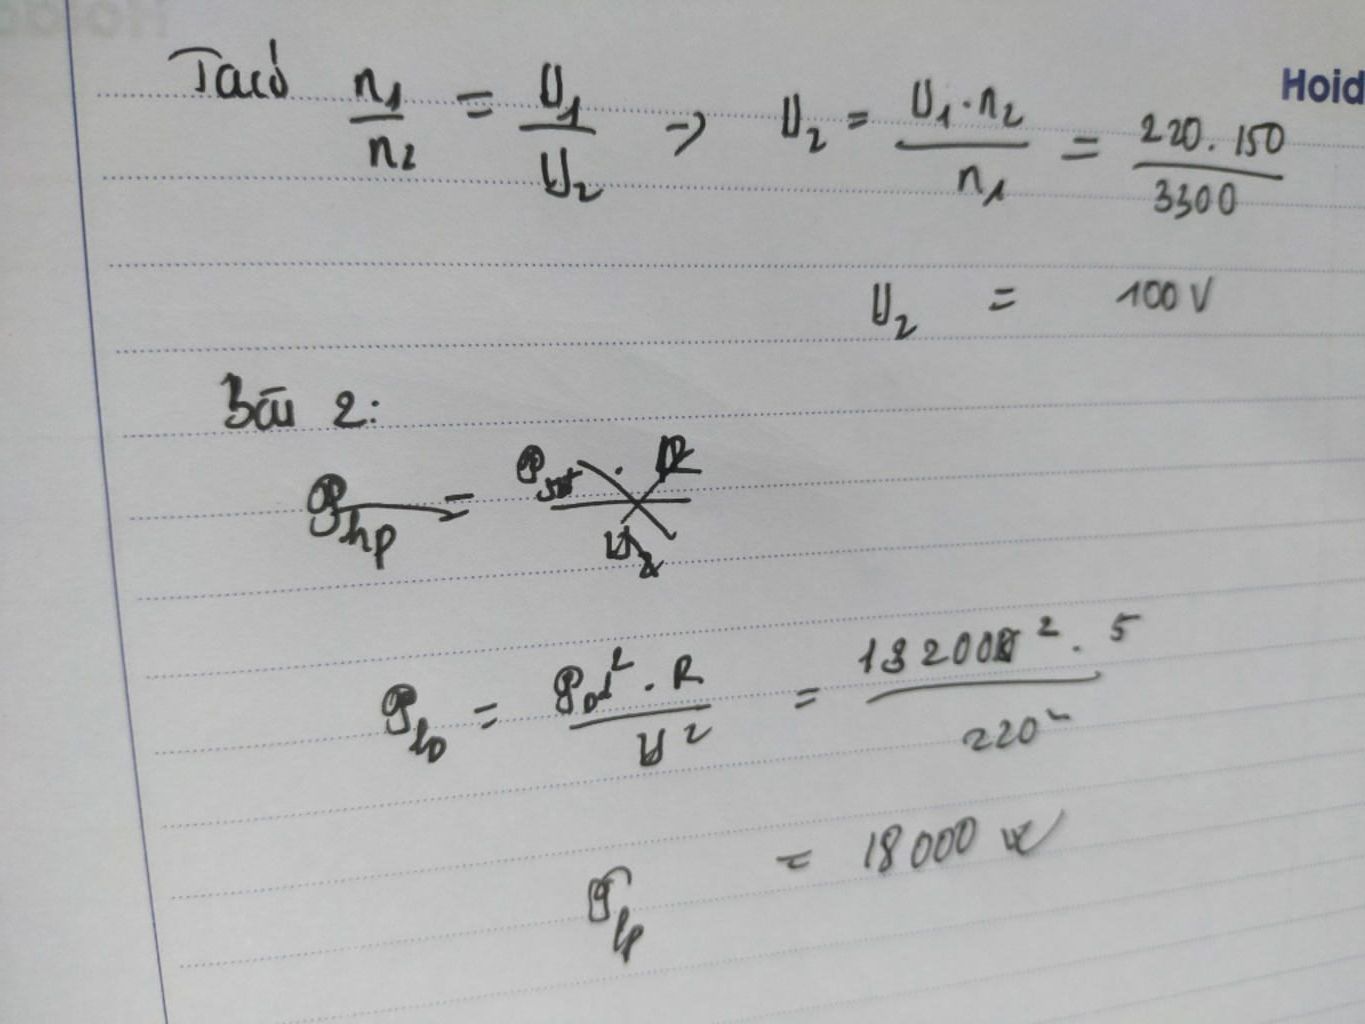 Hoid
Ta có n1/n2 = U1/U2 → U2 = U1.n2/n1 = 220.150/3300
U2 = 100 V
Bài 2:
Php =
Php = P² . R / U² = 13200² . 5 / 220²
Php = 18000 W